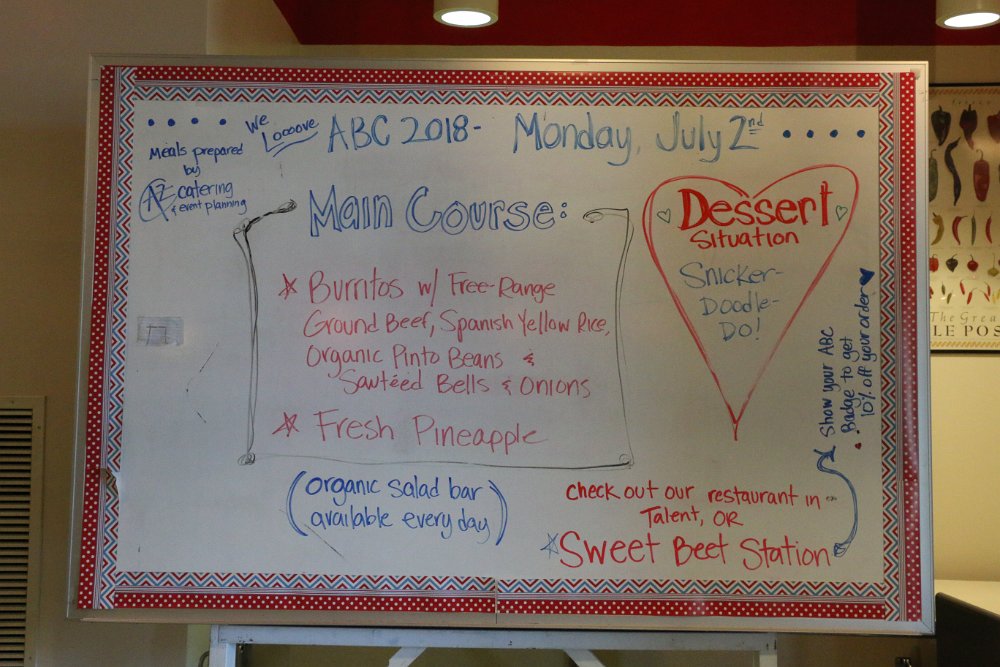 We
Loooove
ABC 2018 - Monday, July 2nd
Meals prepared
by
AZ catering
& event planning
Main Course:
Burritos w/ Free-Range
Ground Beef, Spanish Yellow Rice,
Organic Pinto Beans &
Sautéed Bells & Onions
Fresh Pineapple
(organic salad bar
available every day)
Dessert
Situation
Snicker-
Doodle-
Do!
Show your ABC
Badge to get
10% off your order
check out our restaurant in
Talent, OR
Sweet Beet Station
The Grea
LE POS